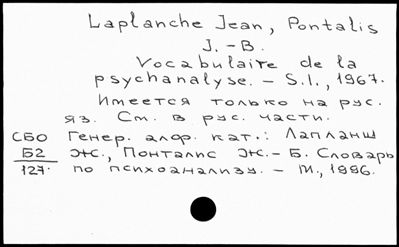 Laplanche Jean, Pontalis
J.-B.
Vocabulaire de la
psychanalyse. – S.l., 1967.
Имеется только на рус.
яз. См. в рус. части.
СБО Генер. алф. кат.: Лапланш
Б2 Ж., Понталис Ж.-Б. Словарь
127. по психоанализу. – М., 1996.